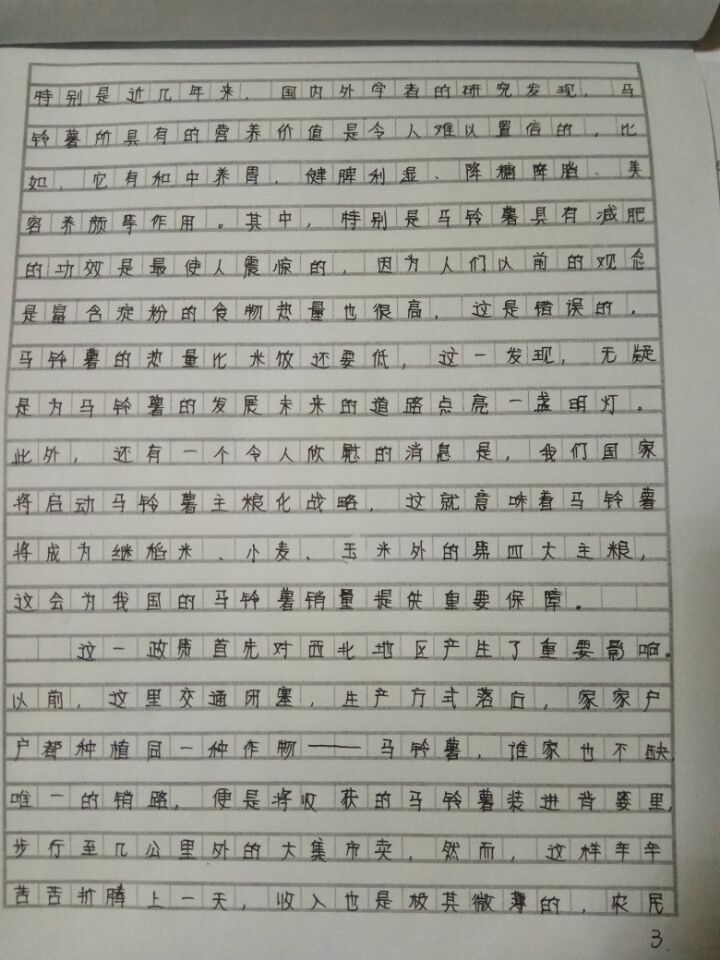 特别是近几年来，国内外学者的研究发现，马
铃薯所具有的营养价值是令人难以置信的，比
如，它有和中养胃，健脾利湿、降糖降脂、美
容养颜等作用。其中，特别是马铃薯具有减肥
的功效是最使人震惊的，因为人们以前的观念
是富含淀粉的食物热量也很高，这是错误的，
马铃薯的热量比米饭还要低，这一发现，无疑
是为马铃薯的发展未来的道路点亮一盏明灯。
此外，还有一个令人欣慰的消息是，我们国家
将启动马铃薯主粮化战略，这就意味着马铃薯
将成为继稻米、小麦、玉米外的第四大主粮，
这会为我国的马铃薯销量提供重要保障。
这一政质首先对西北地区产生了重要影响。
以前，这里交通闭塞，生产方式落后，家家户
户都种植同一种作物——马铃薯，谁家也不缺，
唯一的销路，便是将收获的马铃薯装进背篓里，
步行至几公里外的大集市卖，然而，这样辛辛
苦苦折腾上一天，收入也是极其微薄的，农民
3